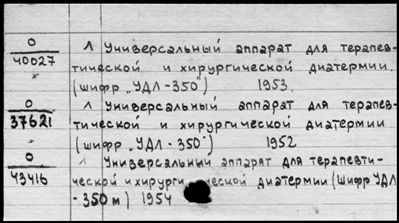 0
40027 Л Универсальный аппарат для терапев-
тической и хирургической диатермии.
(шифр „УДЛ-350") 1953.
0
37621 Л Универсальный аппарат для терапев-
тической и хирургической диатермии
(шифр „УДЛ-350") 1952
0
43416 Л Универсальный аппарат для терапевти-
ческой и хирурги ческой диатермии (Шифр УДЛ
-350м) 1954